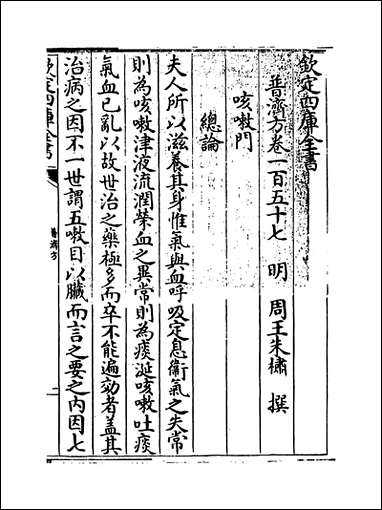 欽定四庫全書
普濟方卷一百五十七　明　周王朱橚　撰
咳嗽門
總論
夫人所以滋養其身惟氣與血呼吸定息衛氣之失常
則為咳嗽津液流潤榮血之異常則為痰涎咳嗽吐痰
氣血已亂以故世治之藥極多而卒不能遍効者葢其
治病之因不一世謂五嗽且以臟而言之要之内因七
欽定四庫全書
普濟方
一